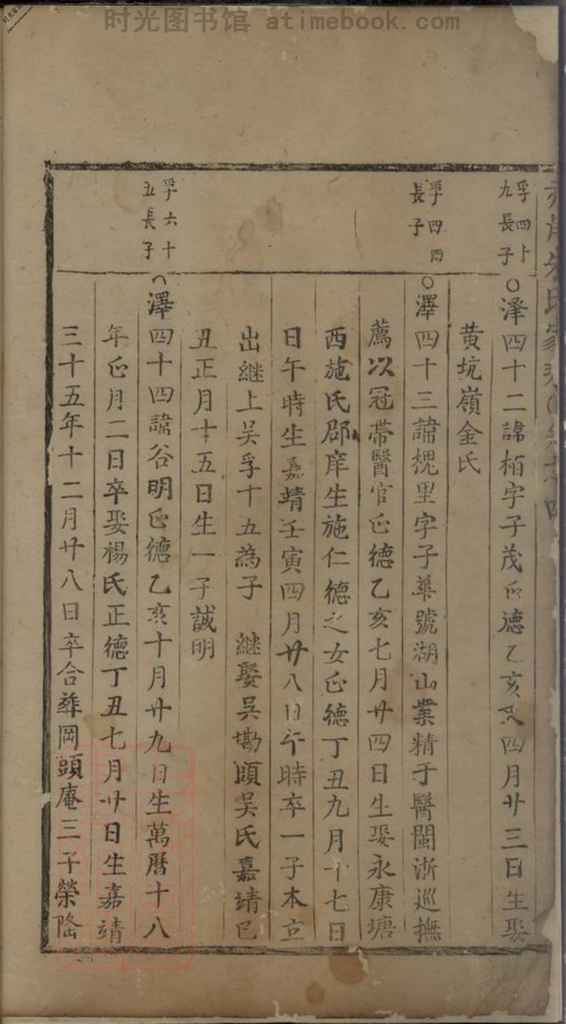 时光图书馆 atimebook.com
孚四十
九長子
○澤四十二諱栢字子茂正德乙亥四月廿三日生娶
黄坑嶺金氏
孚四四
長子
○澤四十三諱槐里字子華號湖山業精于醫閩浙巡撫
薦以冠帶醫官正德乙亥七月廿四日生娶永康塘
西施氏郡庠生施仁德之女正德丁丑九月十七日
日午時生嘉靖壬寅四月廿八日午時卒一子本立
出継上吴孚十五為子 継娶吴坳頭吴氏嘉靖巳
丑正月十五日生一子誠明
孚六十
五長子
澤四十四諱谷明正德乙亥十月廿九日生萬曆十八
年正月二日卒娶楊氏正德丁丑七月廿日生嘉靖
三十五年十二月廿八日卒合葬岡頭庵三子榮隆